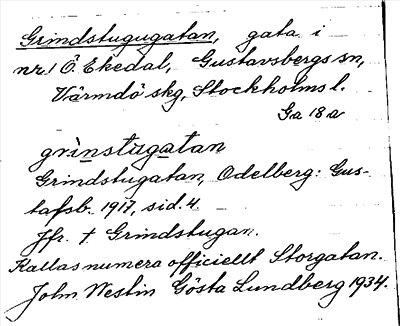 Grindstugugatan, gata i
nr 1 Ö. Ekedal, Gustavsbergs sn,
Värmdö skg, Stockholms l.
Ga 18 a
grinstugatan
Grindstugatan, Odelberg: Gus-
tafsb. 1917, sid. 4.
Jfr. † Grindstugan.
Kallas numera officiellt Storgatan.
John Westin Gösta Lundberg 1934.